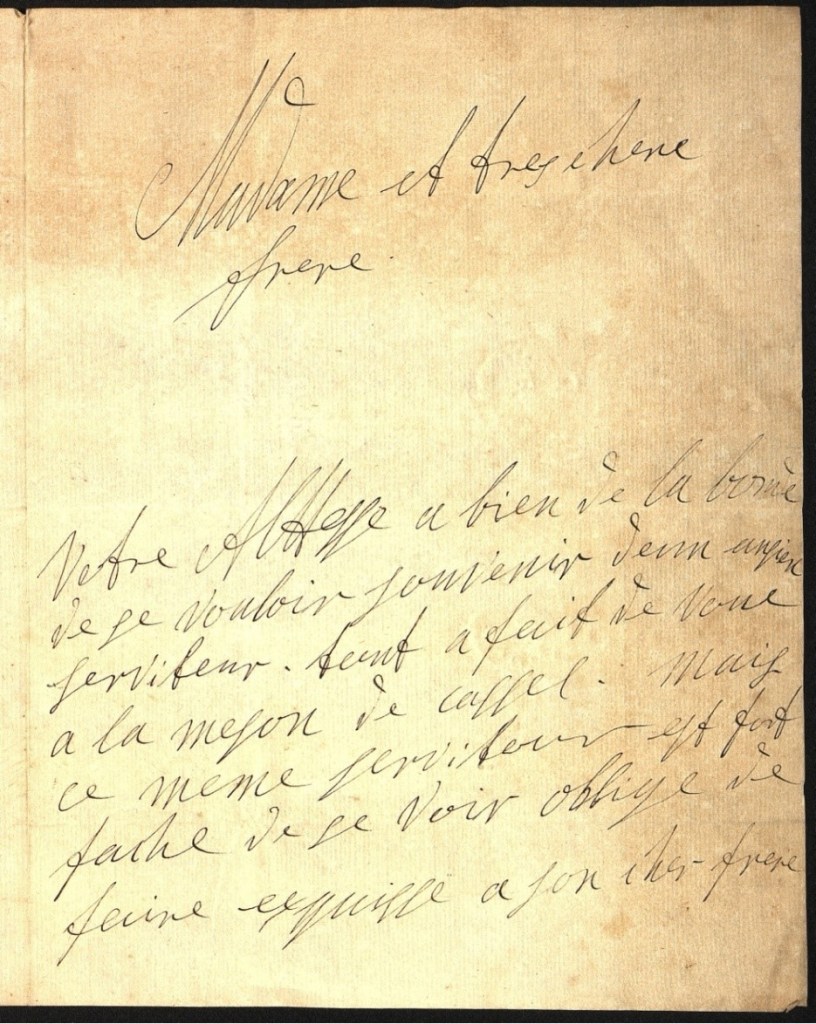 Madame et tres chere
frere
Votre Alltesse a bien de la bonde
de se vouloir souvenir deun ansien
serviteur. tout a fait de voue
a la meson de cassel. mais
ce meme serviteur est fort
fache de se voir oblige de
faire esquisse a son cher frere